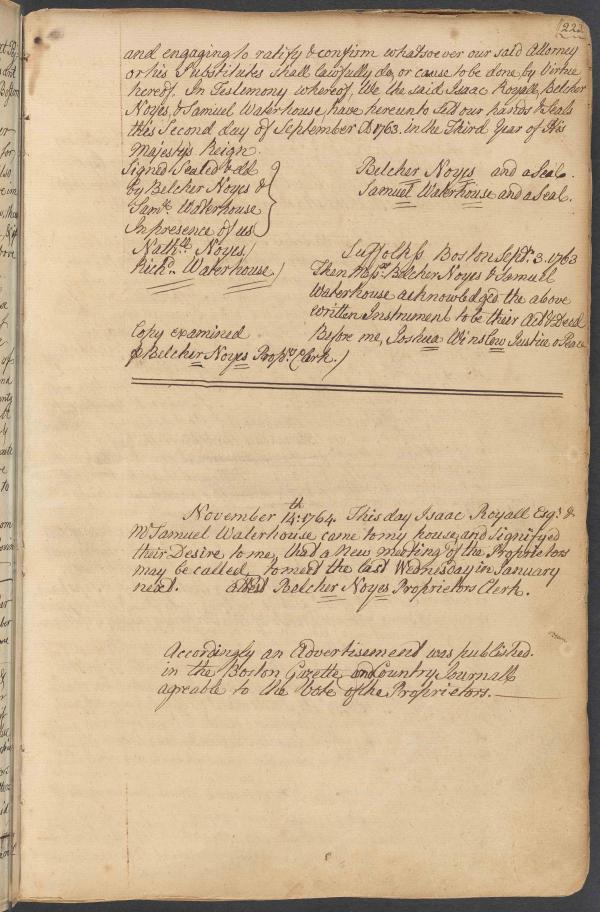 223
and engaging to ratify & confirm whatsoever our said Attorney
or his Substitutes shall lawfully do, or cause to be done, by Virtue
hereof. In Testimony whereof, We the said Isaac Royall, Belcher
Noyes, & Samuel Waterhouse, have hereunto Sett our hands & Seals
this Second day of September AD 1763. in the Third Year of His
Majestys Reign.
Signed Sealed & dd
by Belcher Noyes &
Saml. Waterhouse
In presence of us
Nathll. Noyes
Richd. Waterhouse
Belcher Noyes and a Seal.
Samuel Waterhouse and a Seal.
Suffolk ss Boston Sept. 3. 1763
Then Messrs. Belcher Noyes & Samuel
Waterhouse acknowledged the above
written Instrument to be their Act & Deed
Before me, Joshua Winslow Justice o Peace
Copy examined
p Belcher Noyes Proprs. Clerk.
November 14th: 1764. This day Isaac Royall Esqr. &
Mr Samuel Waterhouse came to my house, and signifyed
their Desire to me, that a new meeting of the Proprietors
may be called, to meet the last Wednesday in January
next. attest Belcher Noyes Proprietors Clerk.
Accordingly an Advertisement was published.
in the Boston Gazette, and Country Journall
agreable to the Vote of the Proprietors.